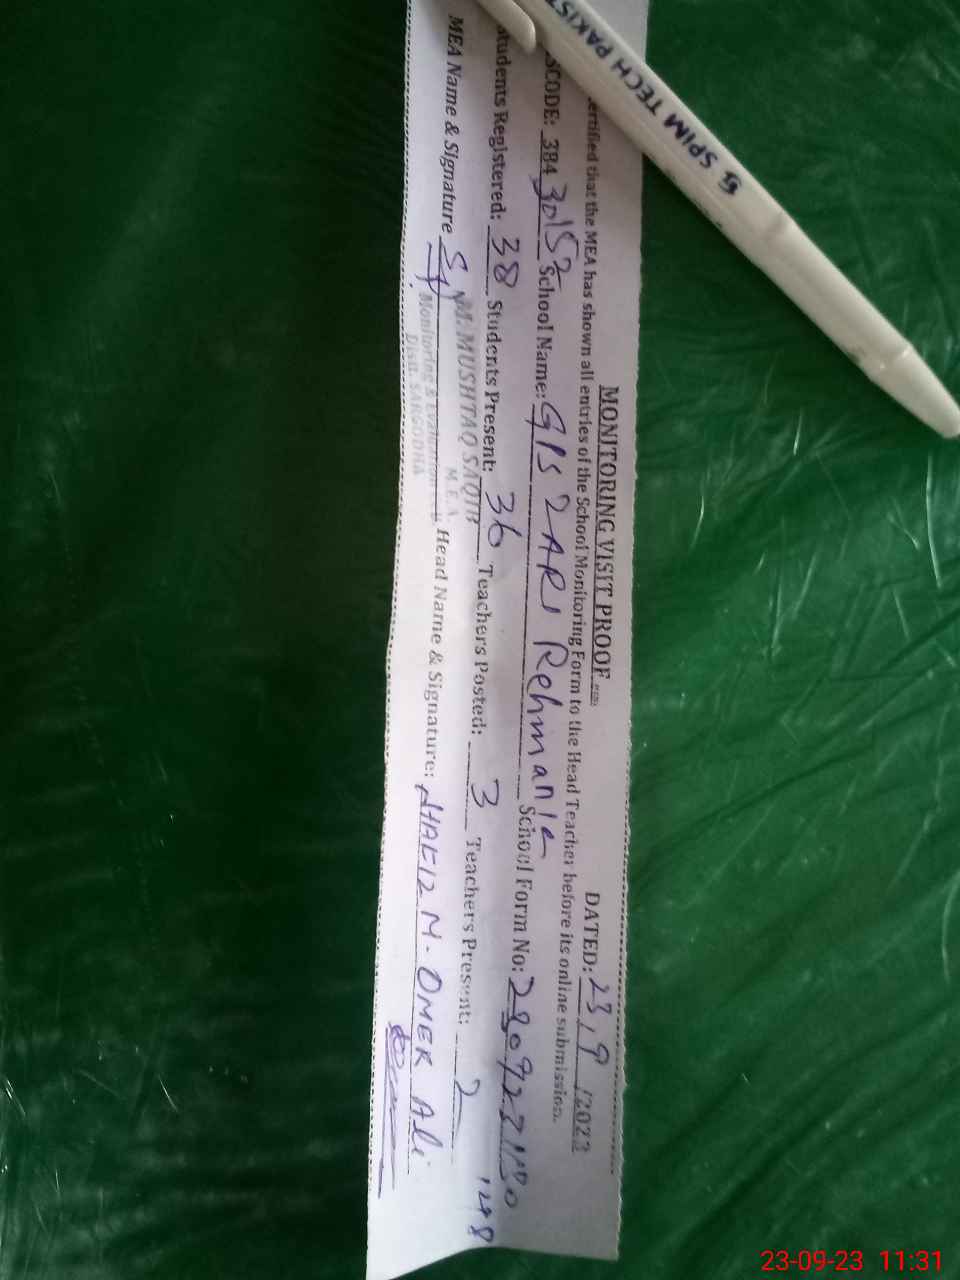 MONITORING VISIT PROOF
DATED: 23/9/2023
ertified that the MEA has shown all entries of the School Monitoring Form to the Head Teacher before its online submission.
SCODE: 384 30152 School Name: GPS ZARI Rehmania School Form No:
1248
Students Registered: 38 Students Present: 36 Teachers Posted: 3 Teachers Present: 2
MEA Name & Signature Head Name & Signature: HAFIZ M. OMER Ali
M. MUSHTAQ SAQIB
M.E.A.
Monitoring & Evaluation
Distt. SARGODHA
SPIM TECH PAKIST
23-09-23 11:31